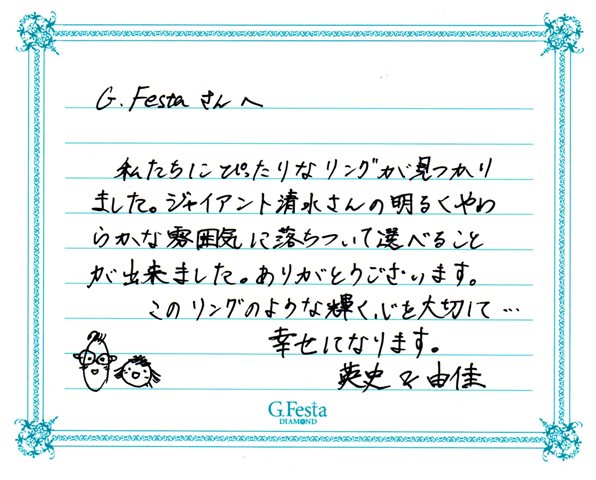 G.Festaさんへ
私たちにぴったりなリングが見つかり
ました。ジャイアント清水さんの明るくやわ
らかな雰囲気に落ちついて選べること
が出来ました。ありがとうございます。
このリングのような輝く心を大切にして…
幸せになります。
英史&由佳
G.Festa
DIAMOND